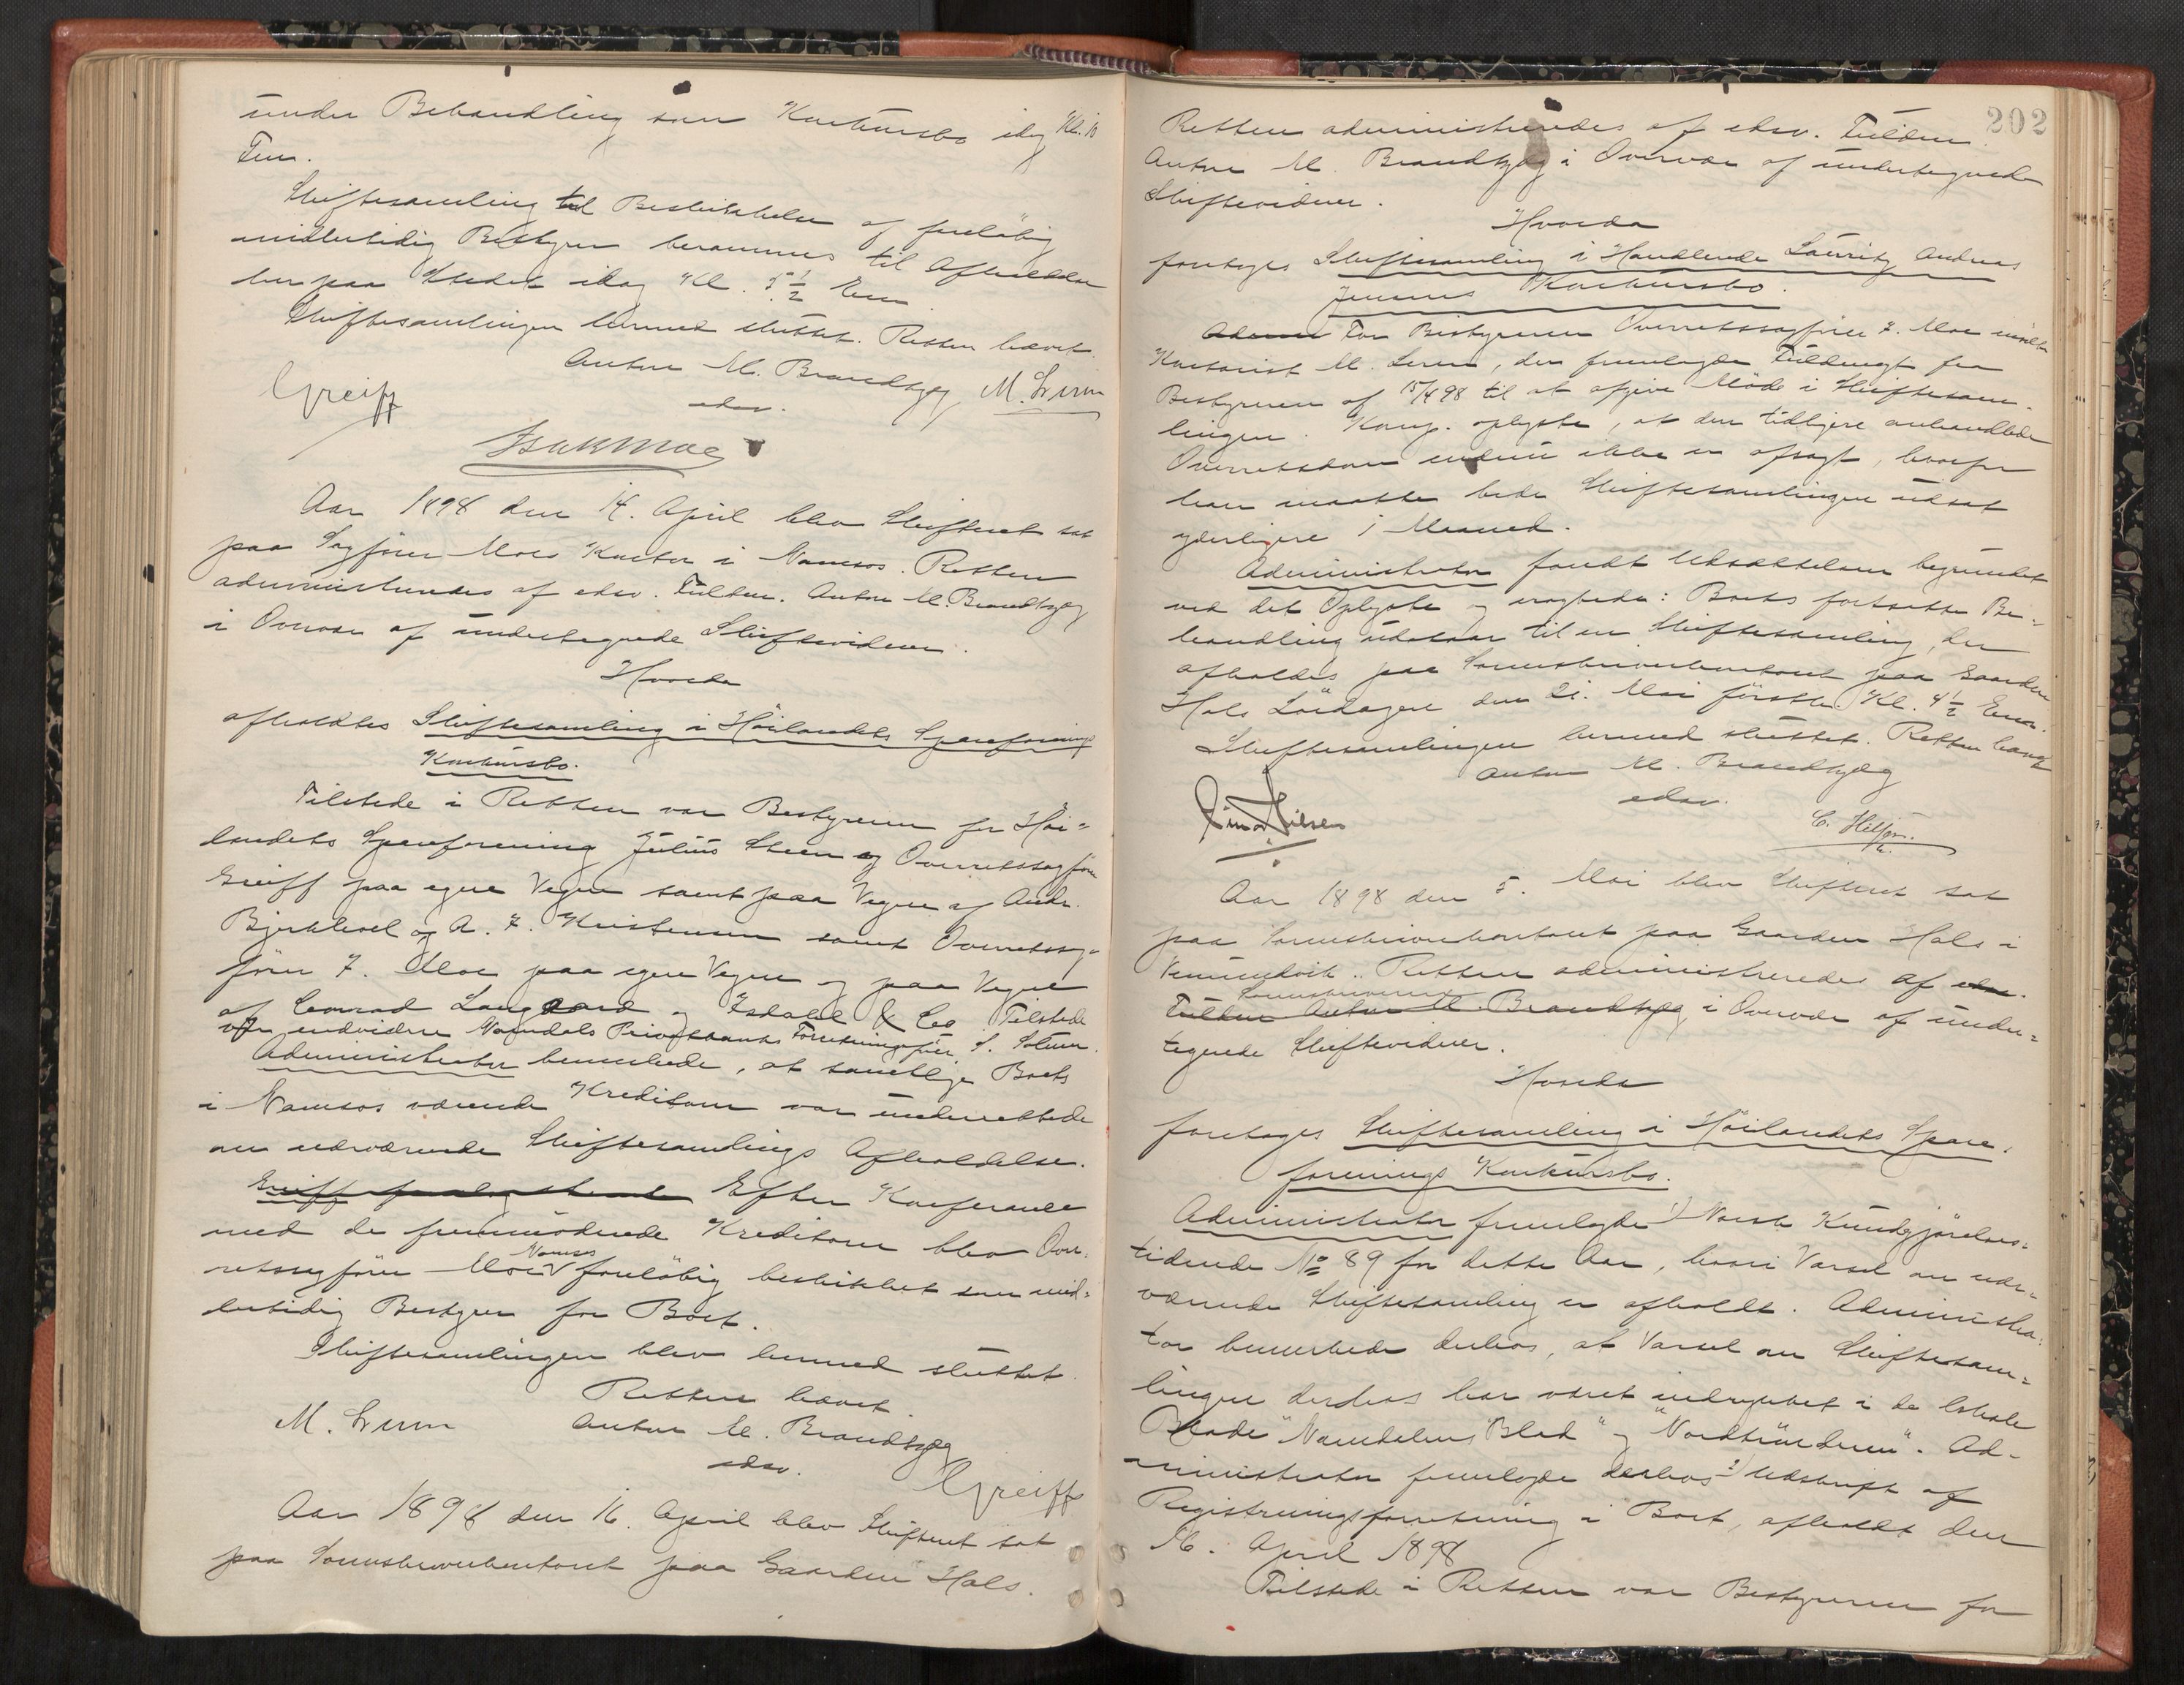 under Behandling som Konkursbo idag Kl. 10
Fm.
Skiftesamling til Beskikkelse af foreløbig
midlertidig Bestyrer berammes til Afholdelse
her paa Stedet idag Kl. 5 1/2 Em
Skiftesamlingen hermed sluttet. Retten hævet.
Anton M. Brandtzæg
edsv.
Greiff
M. Lervn
Isak Moe
Aar 1898 den 14. April blev Skifteret sat
paa Sagfører Moes Kontor i Namsos. Retten
administreredes af edsv. Fuldm. Anton M. Brandtzæg
i Overvær af undertegnede Skiftevidner.
Hvorda
afholdtes Skiftesamling i Höilandets Spareforenings
Konkursbo.
Tilstede i Retten var Bestyreren for Höi=
landets Spareforening Julius Skeen og Overretssagfører
Greiff paa egne Vegne samt paa Vegne af Andr.
og A. F. Kristensen samt Overretssag=
fører F. Moe paa egne Vegne og paa Vegne
af Conrad Langaard og Isdahl & Co. Tilstede
var endvidere Namdals Privatbanks Forretningsfører S.
Administrator bemerkede, at samtlige Boets
i Namsos værende Kreditorer var underrettede
om nærværende Skiftesamlings Afholdelse.
Greiff Efter Konferance
med de fremmødende Kreditorer blev Over=
retssagfører Moe Namsos foreløbig beskikket som mid=
lertidig Bestyrer for Boet.
Skiftesamlingen blev hermed sluttet.
Retten hævet.
M. Lervn
Anton M. Brandtzæg
edsv.
Greiff
Aar 1898 den 16. April blev Skifteret sat
paa Sorenskriverkontoret paa Gaarden Hals.
202
Retten administreredes af edsv. Fuldm.
Anton M. Brandtzæg i Overvær af undertegnede
Skiftevidner.
Hvorda
foretoges Skiftesamling i Handlende Lauritz Andreas
Jensens Konkursbo.
For Bestyreren Overretssagfører F. Moe mødte
Kontorist M. Lervn, der fremlagde Fuldmagt fra
Bestyreren af 15/4 98 til at afgive Møde i Skiftesam=
lingen. Komp. oplyste, at den tidligere omhandlede
Overretsdom endnu ikke er afsagt, hvorfor
han maatte bede Skiftesamlingen udsat
yderligere 1 Maaned.
Administrator fandt Udsættelsen begrundet
ved det Oplyste og eragtede: Boets fortsatte Be=
handling udstaar til en Skiftesamling, der
afholdes paa Sorenskriverkontoret paa Gaarden
Hals Lördagen den 21. Mai förstk. Kl. 4 1/2 Em.
Skiftesamlingen hermed sluttet. Retten hævet
Anton M. Brandtzæg
edsv.
Nilsen
Aar 1898 den 5. Mai blev Skifteret sat
paa Sorenskriverkontoret paa Gaarden Hals i
Vemundvik. Retten administreredes af edsv.
Sorenskriveren
Fuldm. Anton M. Brandtzæg i Overvær af under=
tegnede Skiftevidner.
Hvorda
foretoges Skiftesamling i Höilandets Spare=
forenings Konkursbo.
Administrator fremlagde 1) Norsk Kundgjörelses=
tidende No 89 for dette Aar, hvori Varsel om nær=
værende Skiftesamling er afholdt. Administra=
tor bemerkede derhos, at Varsel om Skiftesam=
lingen derhos har været indrykket i de lokale
Blade "Namdalens Blad" og "Nordtrönderen". Ad=
ministrator fremlagde derhos 2) Udskrift af
Registreringsforretning i Boet, afholdt den
16. April 1898
Tilstede i Retten var Bestyreren for